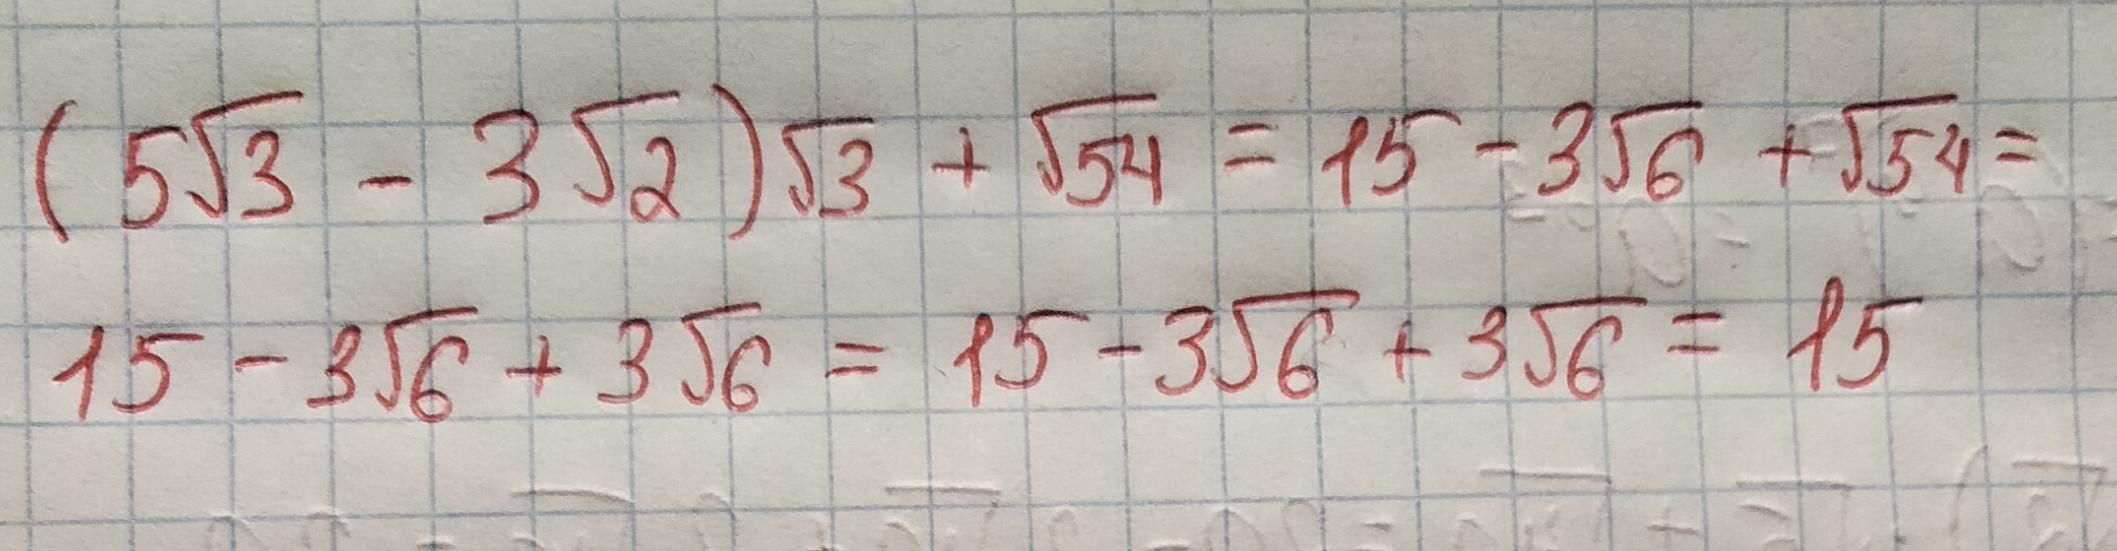 (5√3 - 3√2)√3 + √54 = 15 - 3√6 + √54 =
15 - 3√6 + 3√6 = 15 - 3√6 + 3√6 = 15